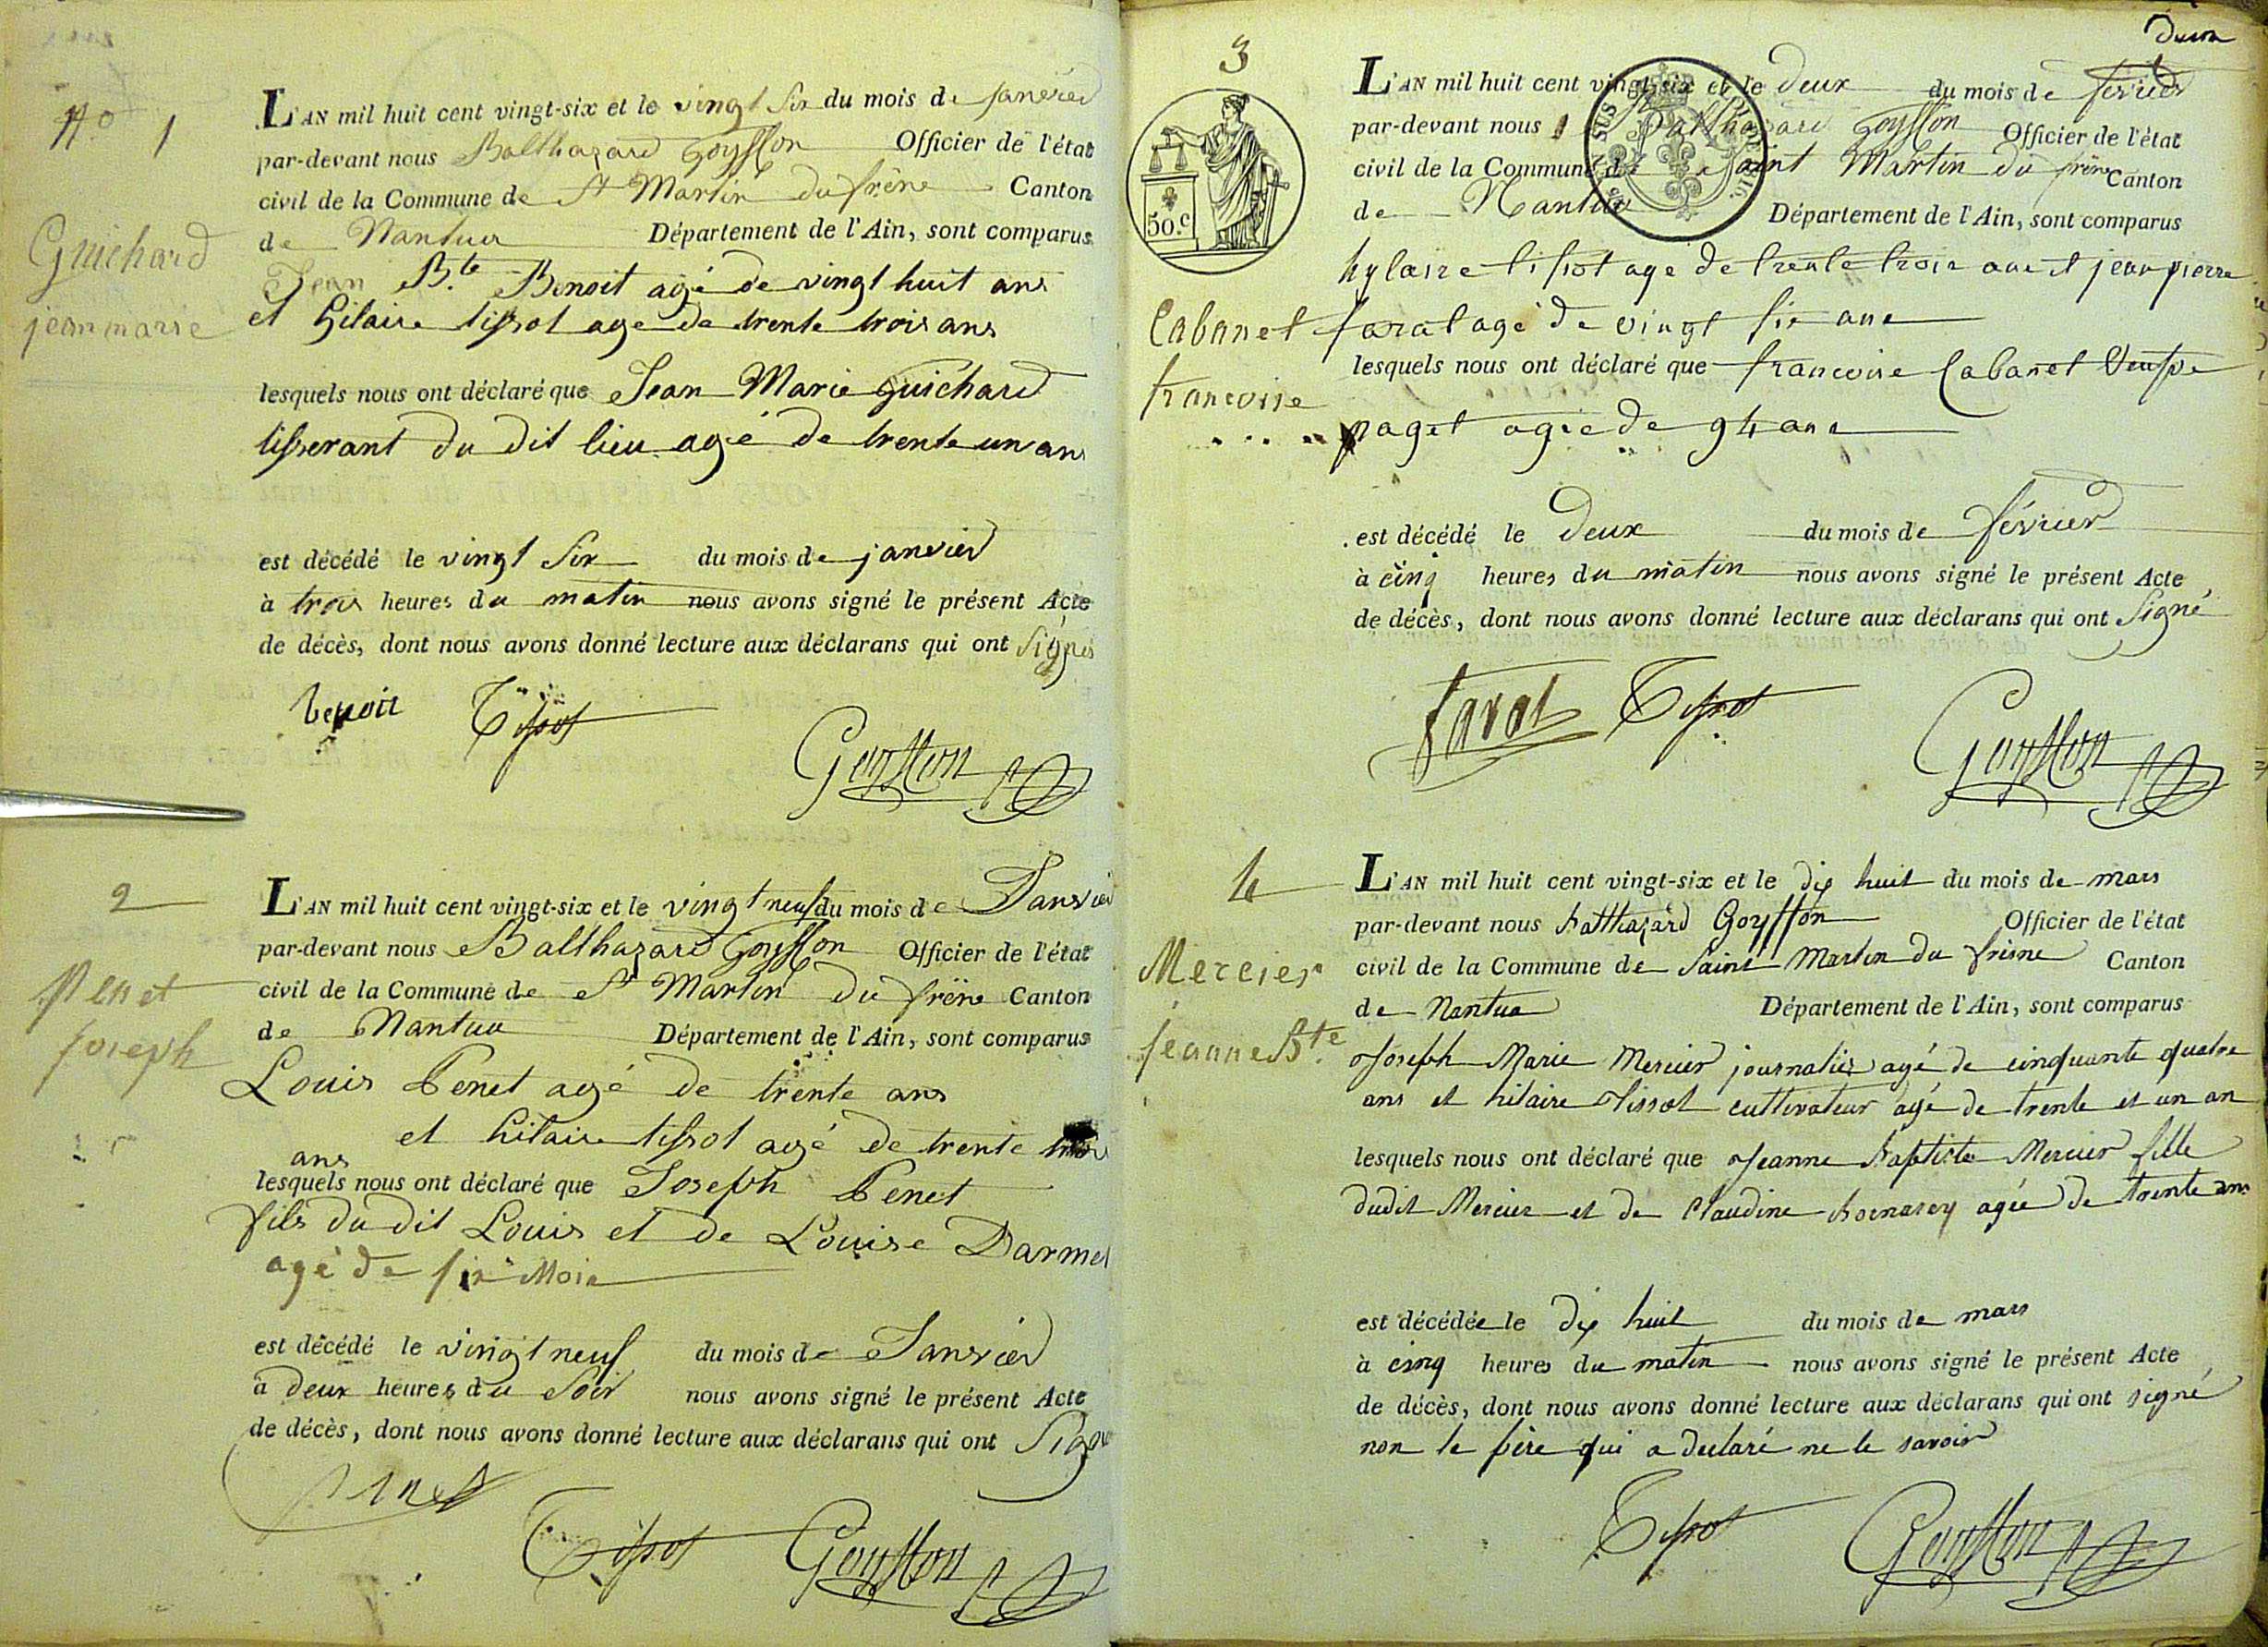 N.o 1
Guichard
jean marie
L'AN mil huit cent vingt-six et le vingt six du mois de janvier
par-devant nous Balthazard Goyffon Officier de l'état
civil de la Commune de St Martin du frêne Canton
de Nantua Département de l'Ain, sont comparus
Jean Bte Benoit agé de vingt huit ans
et hilaire tissot age de trente trois ans
lesquels nous ont déclaré que Jean Marie Guichard
tisserant du dit lieu agé de trente un ans
est décédé le vingt six du mois de janvier
à trois heures du matin nous avons signé le présent Acte
de décès, dont nous avons donné lecture aux déclarans qui ont signés
benoit Tissot
Goyffon
2
Penet
joseph
L'AN mil huit cent vingt-six et le vingt neuf du mois de Janvier
par-devant nous Balthazard Goyffon Officier de l'état
civil de la Commune de St Martin du frêne Canton
de Nantua Département de l'Ain, sont comparus
Louis Penet agé de trente ans
et hilaire tissot agé de trente trois
ans
lesquels nous ont déclaré que Joseph Penet
fils du dit Louis et de Louise Darmet
agé de six Mois
est décédé le vingt neuf du mois de Janvier
à deux heures du soir nous avons signé le présent Acte
de décès, dont nous avons donné lecture aux déclarans qui ont signé
penet
Tissot Goyffon
3
50.c
Cabanet
francoise
L'AN mil huit cent vingt-six et le deux du mois de février
par-devant nous Balthazard Goyffon Officier de l'état
civil de la Commune de Saint Martin du frêne Canton
de Nantua Département de l'Ain, sont comparus
hylaire tissot age de trente trois ans et jean pierre
favat agé de vingt six ans
lesquels nous ont déclaré que francoise Cabanet Veufve
paget agée de 94 ans
est décédé le deux du mois de février
à cinq heures du matin nous avons signé le présent Acte
de décès, dont nous avons donné lecture aux déclarans qui ont signé
favat Tissot
Goyffon
4
Mercier
jeanne Bte
L'AN mil huit cent vingt-six et le dix huit du mois de mars
par-devant nous Balthazard Goyffon Officier de l'état
civil de la Commune de Saint Martin du frêne Canton
de Nantua Département de l'Ain, sont comparus
Joseph Marie Mercier journalier agé de cinquante quatre
ans et hilaire Tissot cultivateur agé de trente et un an
lesquels nous ont déclaré que Jeanne Baptiste Mercier fille
dudit Mercier et de Claudine agée de trente ans
est décédée le dix huit du mois de mars
à cinq heures du matin nous avons signé le présent Acte
de décès, dont nous avons donné lecture aux déclarans qui ont signé
non le père qui a declaré ne le savoir
Tissot Goyffon